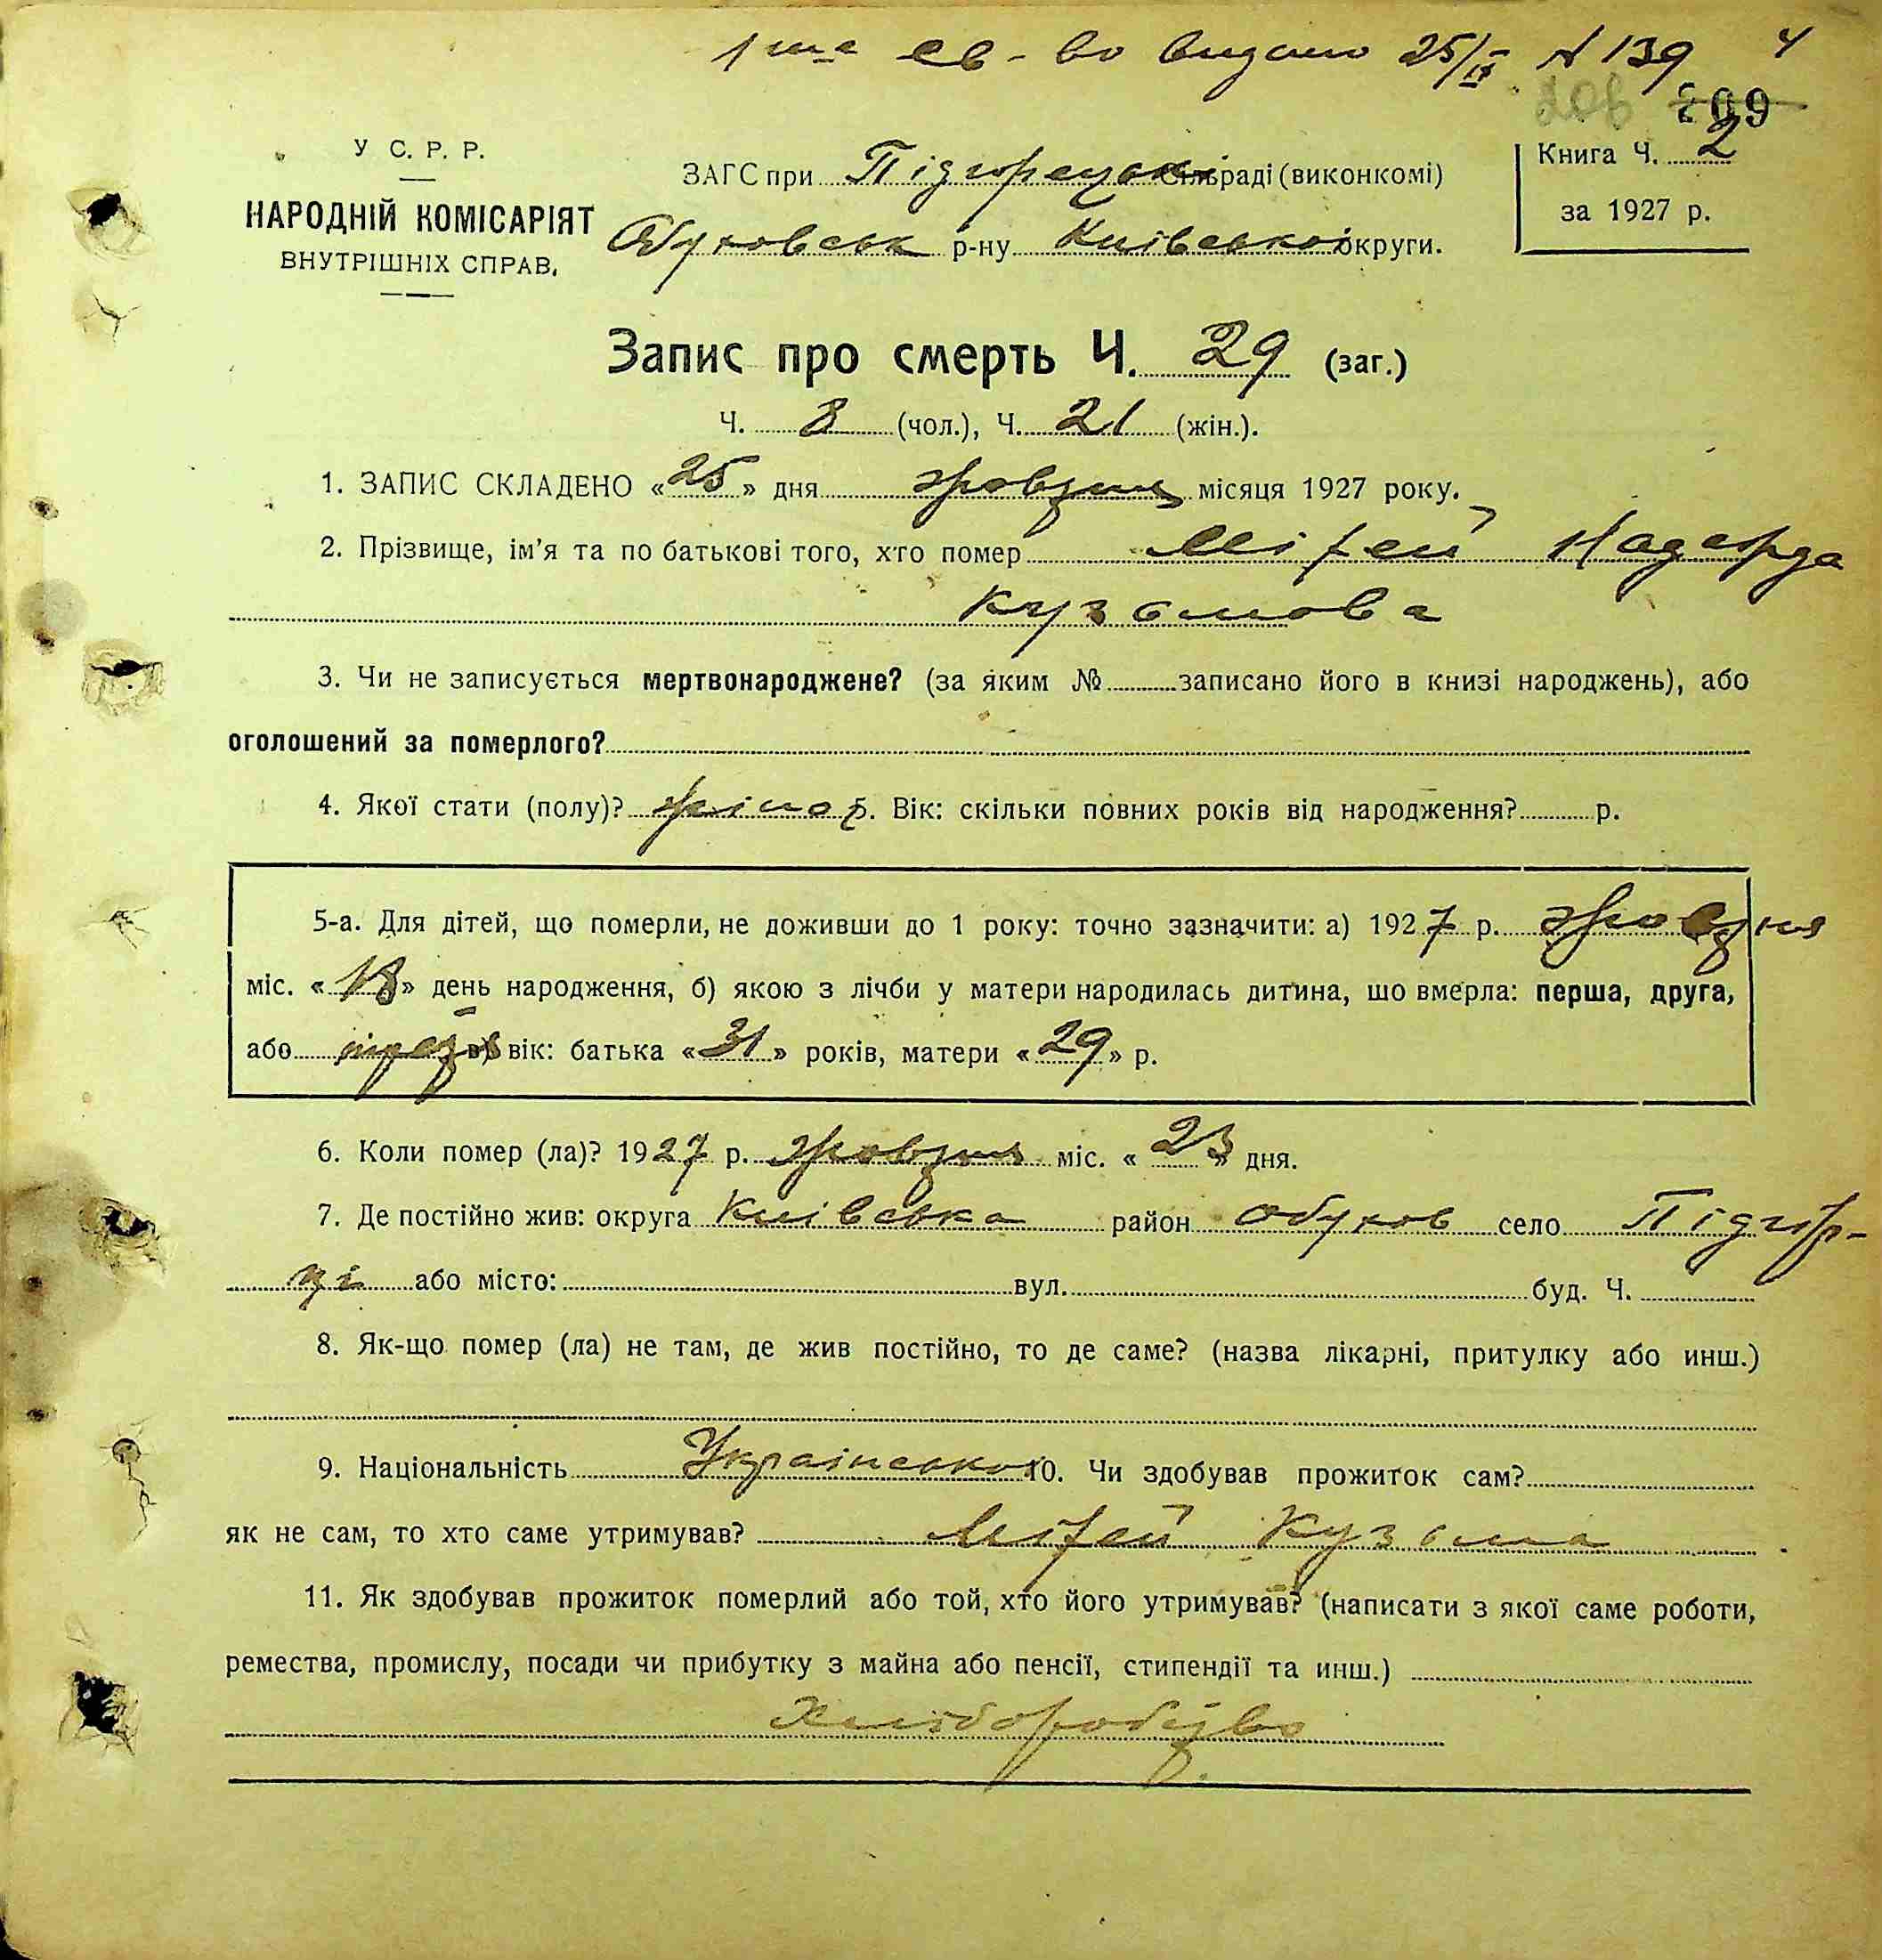 1 ша св-во видано 25/IX N 139 4
209
У С. Р. Р.
НАРОДНІЙ КОМІСАРІЯТ
ВНУТРІШНІХ СПРАВ.
ЗАГС при Підгорецькі сільраді (виконкомі)
Обуховськ р-ну Київської округи.
Книга Ч. 2
за 1927 р.
Запис про смерть Ч. 29 (заг.)
Ч. 8 (чол.), Ч. 21 (жін.).
1. ЗАПИС СКЛАДЕНО «25» дня жовтня місяця 1927 року.
2. Прізвище, ім'я та по батькові того, хто помер
Кузьмова
3. Чи не записується мертвонароджене? (за яким № записано його в книзі народжень), або
оголошений за померлого?
4. Якої стати (полу)? жіноч 5. Вік: скільки повних років від народження? р.
5-а. Для дітей, що померли, не доживши до 1 року: точно зазначити: а) 1927 р. жовтня
міс. «18» день народження, б) якою з лічби у матери народилась дитина, шо вмерла: перша, друга,
або в) вік: батька «31» років, матери «29» р.
6. Коли помер (ла)? 1927 р. жовтня міс. «23» дня.
7. Де постійно жив: округа Київська район Обухов село Підгір-
ці або місто: вул. буд. Ч.
8. Як-що помер (ла) не там, де жив постійно, то де саме? (назва лікарні, притулку або инш.)
9. Національність Українська 10. Чи здобував прожиток сам?
як не сам, то хто саме утримував? Кузьма
11. Як здобував прожиток померлий або той, хто його утримував? (написати з якої саме роботи,
ремества, промислу, посади чи прибутку з майна або пенсії, стипендії та инш.)
хліборобство